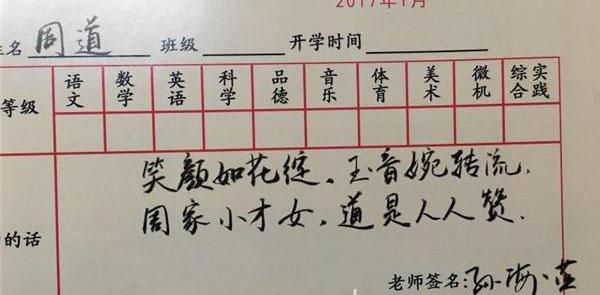 2017年1月
姓名 周道 班级 开学时间
等级 语文 数学 英语 科学 品德 音乐 体育 美术 微机 综合实践
笑颜如花绽，玉音婉转流，
周家小才女，道是人人赞．
的话
老师签名：孙海